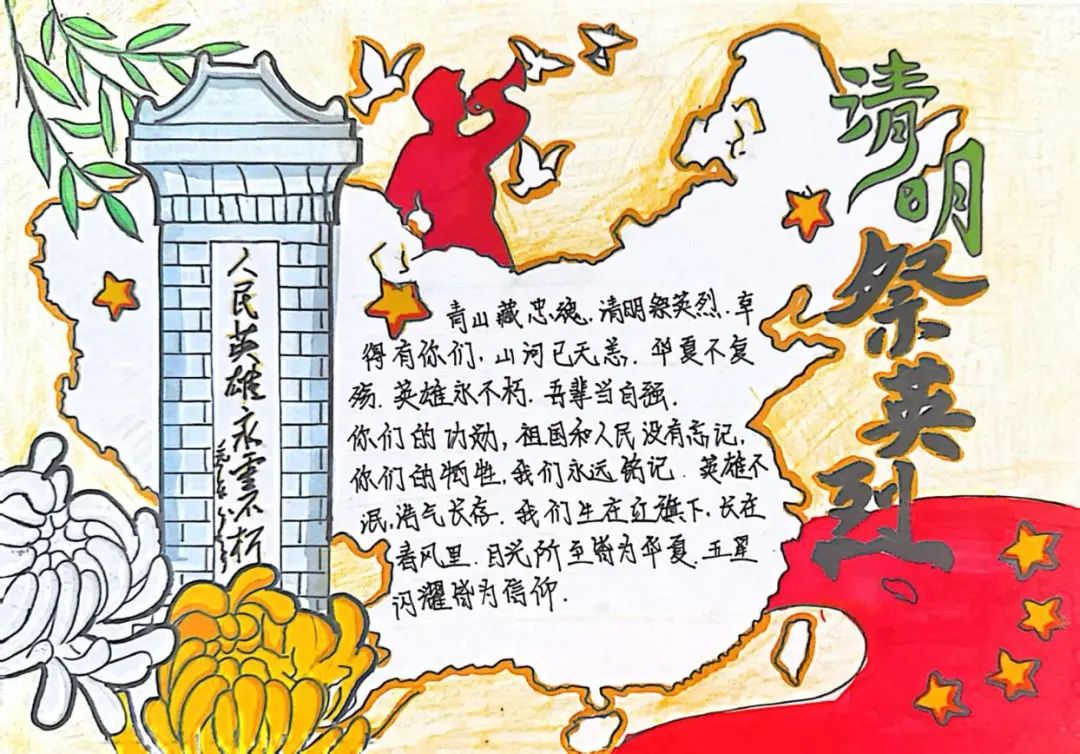 清明
祭英烈
人民英雄永垂不朽
青山藏忠魂,清明祭英烈.幸
得有你们,山河已无恙.华夏不复
殇.英雄永不朽.吾辈当自强.
你们的功勋,祖国和人民没有忘记,
你们的牺牲,我们永远铭记.英雄不
泯,浩气长存.我们生在红旗下,长在
春风里.目光所至皆为华夏.五星
闪耀皆为信仰.